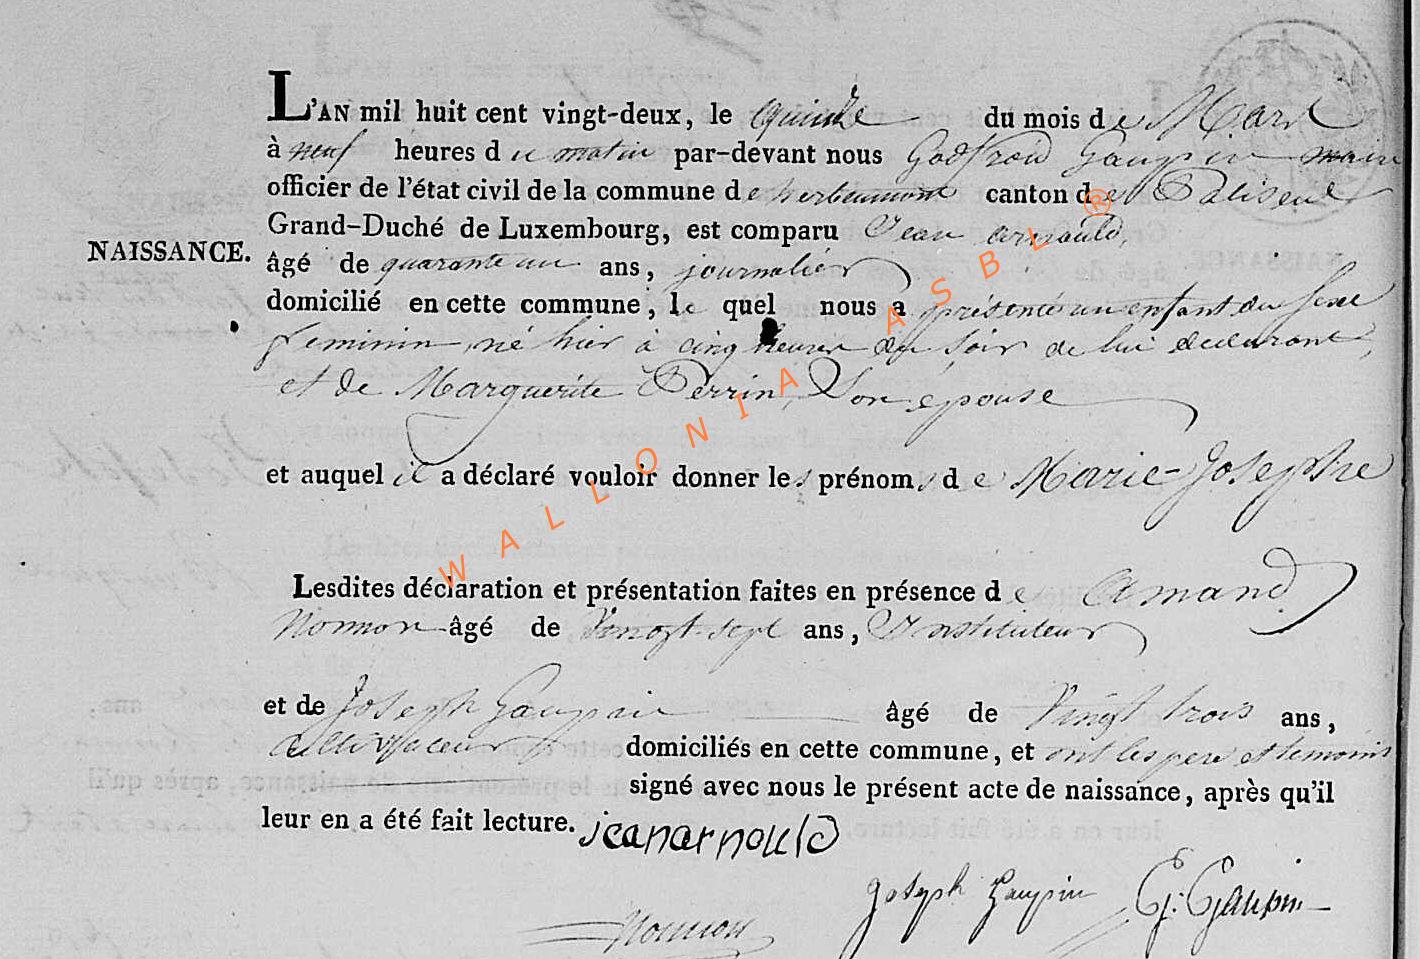 L'AN mil huit cent vingt-deux, le quinze du mois de Mars
à neuf heures du matin par-devant nous Godfroid Gaupin maire
officier de l'état civil de la commune de herbeumont canton de Paliseul
Grand-Duché de Luxembourg, est comparu Jean arnould,
NAISSANCE.
âgé de quarante un ans, journalier
domicilié en cette commune, lequel nous a présenté un enfant du sexe
feminin, né hier à cinq heures du soir de lui declarant,
et de Marguerite Perrin, Son epouse
et auquel il a déclaré vouloir donner les prénoms de Marie-Josephe
Lesdites déclaration et présentation faites en présence de Amand
Nonnon âgé de Vingt-sept ans, Instituteur
et de Joseph Gaupin âgé de Vingt trois ans,
Cultivateur domiciliés en cette commune, et ont les pere et temoins
signé avec nous le présent acte de naissance, après qu'il
leur en a été fait lecture. jeanarnould
Joseph Gaupin G: Gaupin
Nonnon
WALLONIA ASBL ®